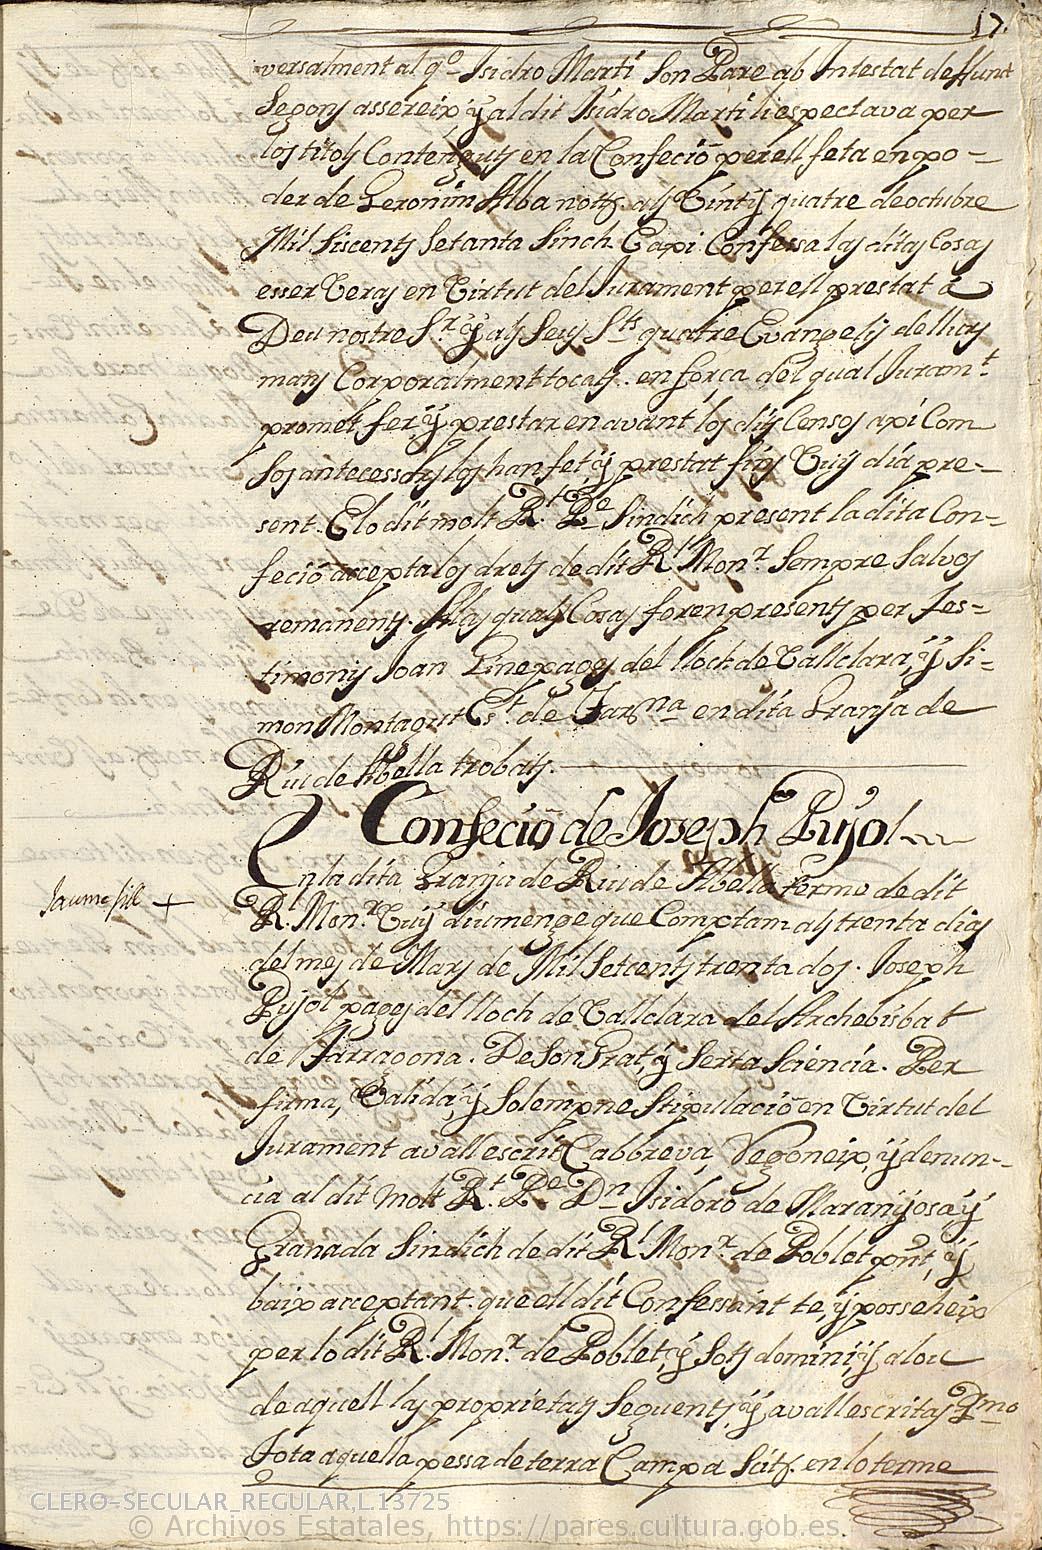 17.
versalment al q.º Isidro Martí Son Pare ab Intestat deffunt
Segons assereix ÿ al dit Isidro Martí li espectava per
los titols Contenguts en la Confeció per ell feta en po-
der de Geronim Alba nott. als Vint ÿ quatre de octubre
Mil Siscents Setanta Sinch. E api Confessa las ditas Cosas
esser Veras en Virtut del Jurament per ell prestat á
Deu nostre S.r ÿ als Seus S.ts quatre Evangelis de llurs
mans Corporalment tocats. en força del qual Juram.t
promet fer ÿ prestar en avant los dits Censos api Com
Sos antecessors los han fet ÿ prestat fins Vuÿ dia pre-
sent. E lo dit molt R.t P.e Sindich present la dita Con-
feció accepta los drets de dit R.l Mon.r Sempre Salvos
remanents. A las quals Cosas foren presents per tes-
timonis Joan Pine pages del lloch de Vallclara, ÿ Si-
mon Montagut Es.t de Tar.na en dita Granja de
Riu de Abella trobats.
Confeció de Joseph Pujol
En la dita Granja de Riu de Abella terme de dit
Jaume fill +
R.l Mon.r Vuÿ diumenge que Comptam als trenta dias
del mes de Mars de Mil Setcents trenta dos. Joseph
Pujol pages del lloch de Vallclara del Archebisbat
de Tarragona. De Son Grat, ÿ Serta Sciencia. Per
firma, Valida, ÿ Solempne Stipulació en Virtut del
Jurament avall escrit Cabbreva, Regoneix, ÿ denun-
cia al dit molt R.t P.e D.n Isidoro de Maranÿosa ÿ
Granada Sindich de dit R.l Mon.r de Poblet pnt, ÿ
baix acceptant. que ell dit Confessant te, ÿ posseheix
per lo dit R.l Mon.r de Poblet, ÿ Sots domini, ÿ alou
de aquell las proprietats Seguents, ÿ avall escritas P.mo
Tota aquella pessa de terra Campa Scitt. en lo terme
CLERO-SECULAR_REGULAR,L.13725
© Archivos Estatales, https://pares.cultura.gob.es.